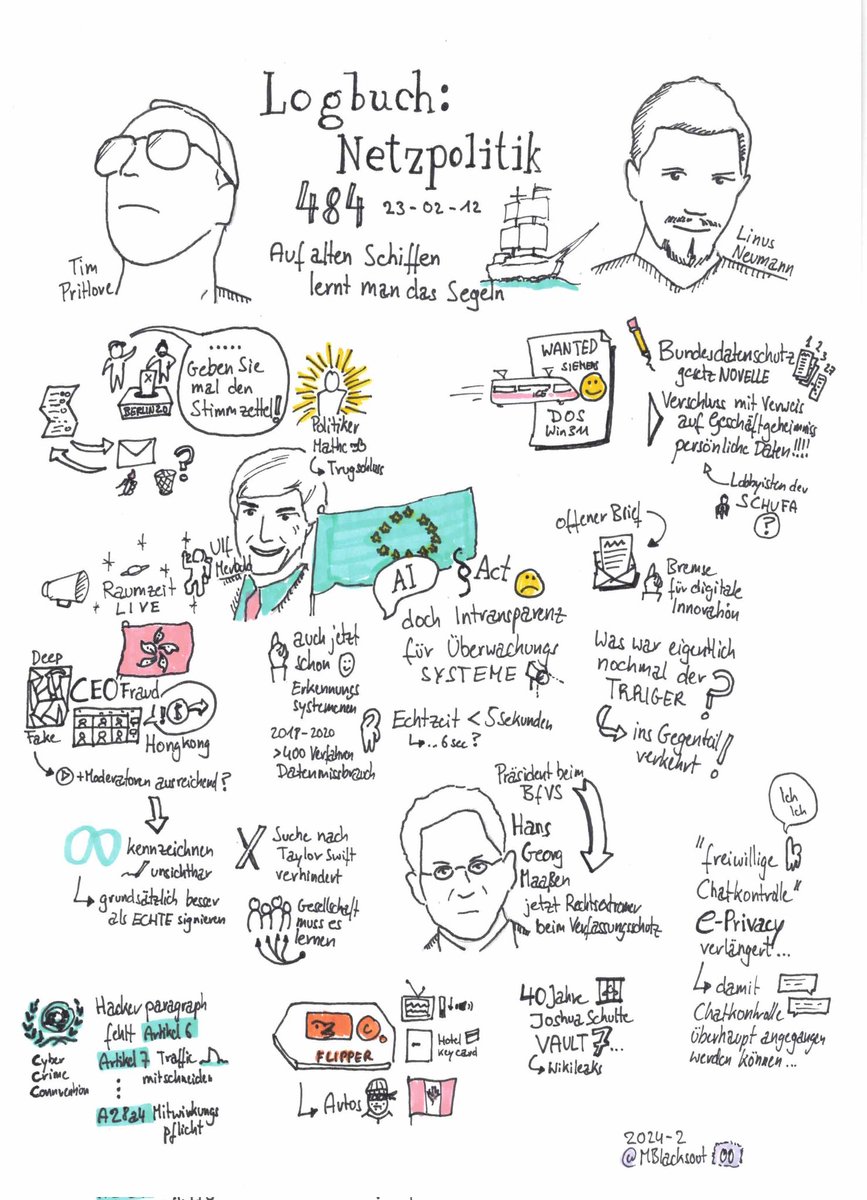 Logbuch:
Netzpolitik
484 23-02-12
Auf alten Schiffen
lernt man das Segeln
Tim
Pritlove
Linus
Neumann
.....
Geben Sie
mal den
Stimmzettel!
X
BERLIN 20
?
Politiker
Mathe
↳ Trugschluss
WANTED
SIEMENS
ICE
DOS
Win 3.11
Bundesdatenschutz
gesetz NOVELLE
1
2
3
Verschluss mit Verweis
auf Geschäftgeheimniss
persönliche Daten!!!!
Lobbyisten der
SCHUFA
?
Raumzeit
LIVE
Ulf
Merbold
AI § Act
doch Intransparenz
für Überwachungs
SYSTEME
offener Brief
Bremse
für digitale
Innovation
Was war eigentlich
nochmal der
TRRIGER ?
ins Gegenteil
verkehrt !
auch jetzt
schon
Erkennungs
systemenen
2017-2020
>400 Verfahren
Datenmissbrauch
Echtzeit < 5 Sekunden
↳ ... 6 sec ?
Deep
Fake
CEO Fraud
! $
Hongkong
+Moderatoren ausreichend ?
kennzeichnen
unsichtbar
↳ grundsätzlich besser
als ECHTE signieren
X Suche nach
Taylor Swift
verhindert
Gesellschaft
muss es
lernen
Präsident beim
BfVS
Hans
Georg
Maaßen
jetzt Rechtsextremer
beim Verfassungsschutz
Ich
Ich
"freiwillige
Chatkontrolle"
e-Privacy
verlängert...
↳ damit
Chatkontrolle
überhaupt angegangen
werden können...
Cyber
Crime
Connvention
Hackerparagraph
fehlt Artikel 6
Artikel 7 Traffic
mitschneiden
A28a4 Mitwirkungs
pflicht
FLIPPER
Hotel
Key card
↳ Autos
40 Jahre
Joshua Schulte
VAULT 7...
↳ Wikileaks
2024-2
@MBlachsout